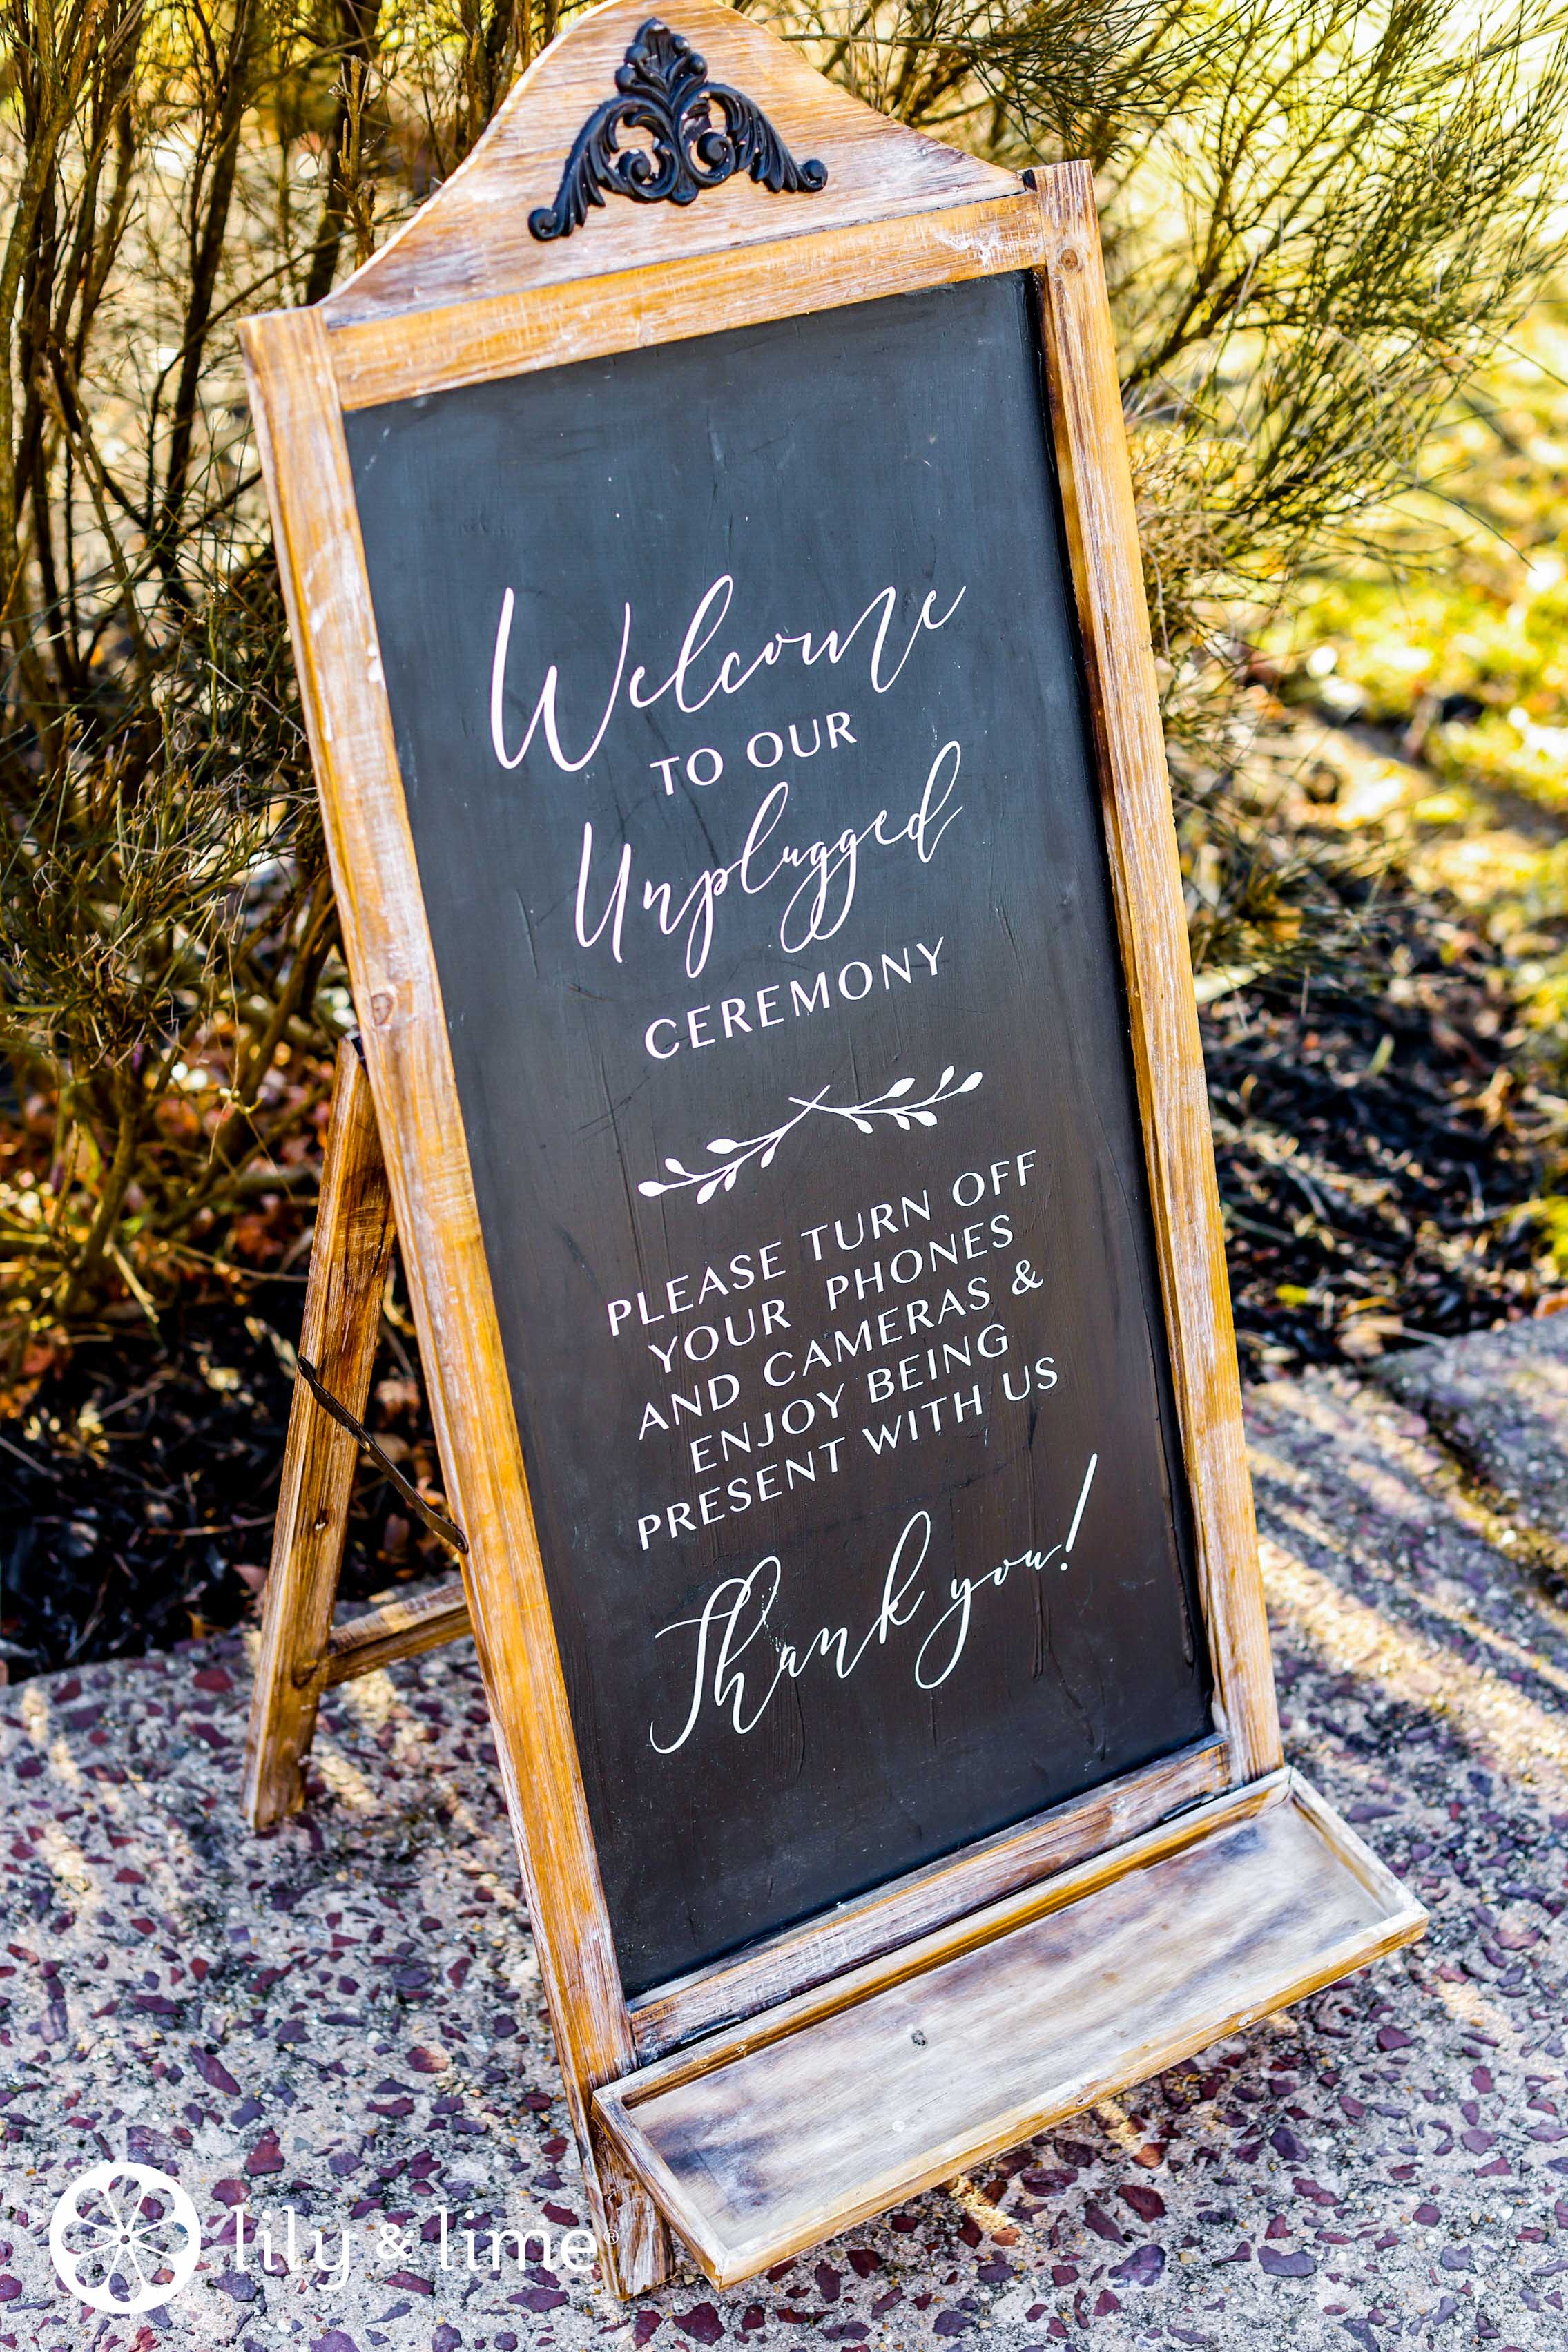 Welcome
TO OUR
Unplugged
CEREMONY
PLEASE TURN OFF
YOUR PHONES
AND CAMERAS &
ENJOY BEING
PRESENT WITH US
Thank you!
lily & lime®